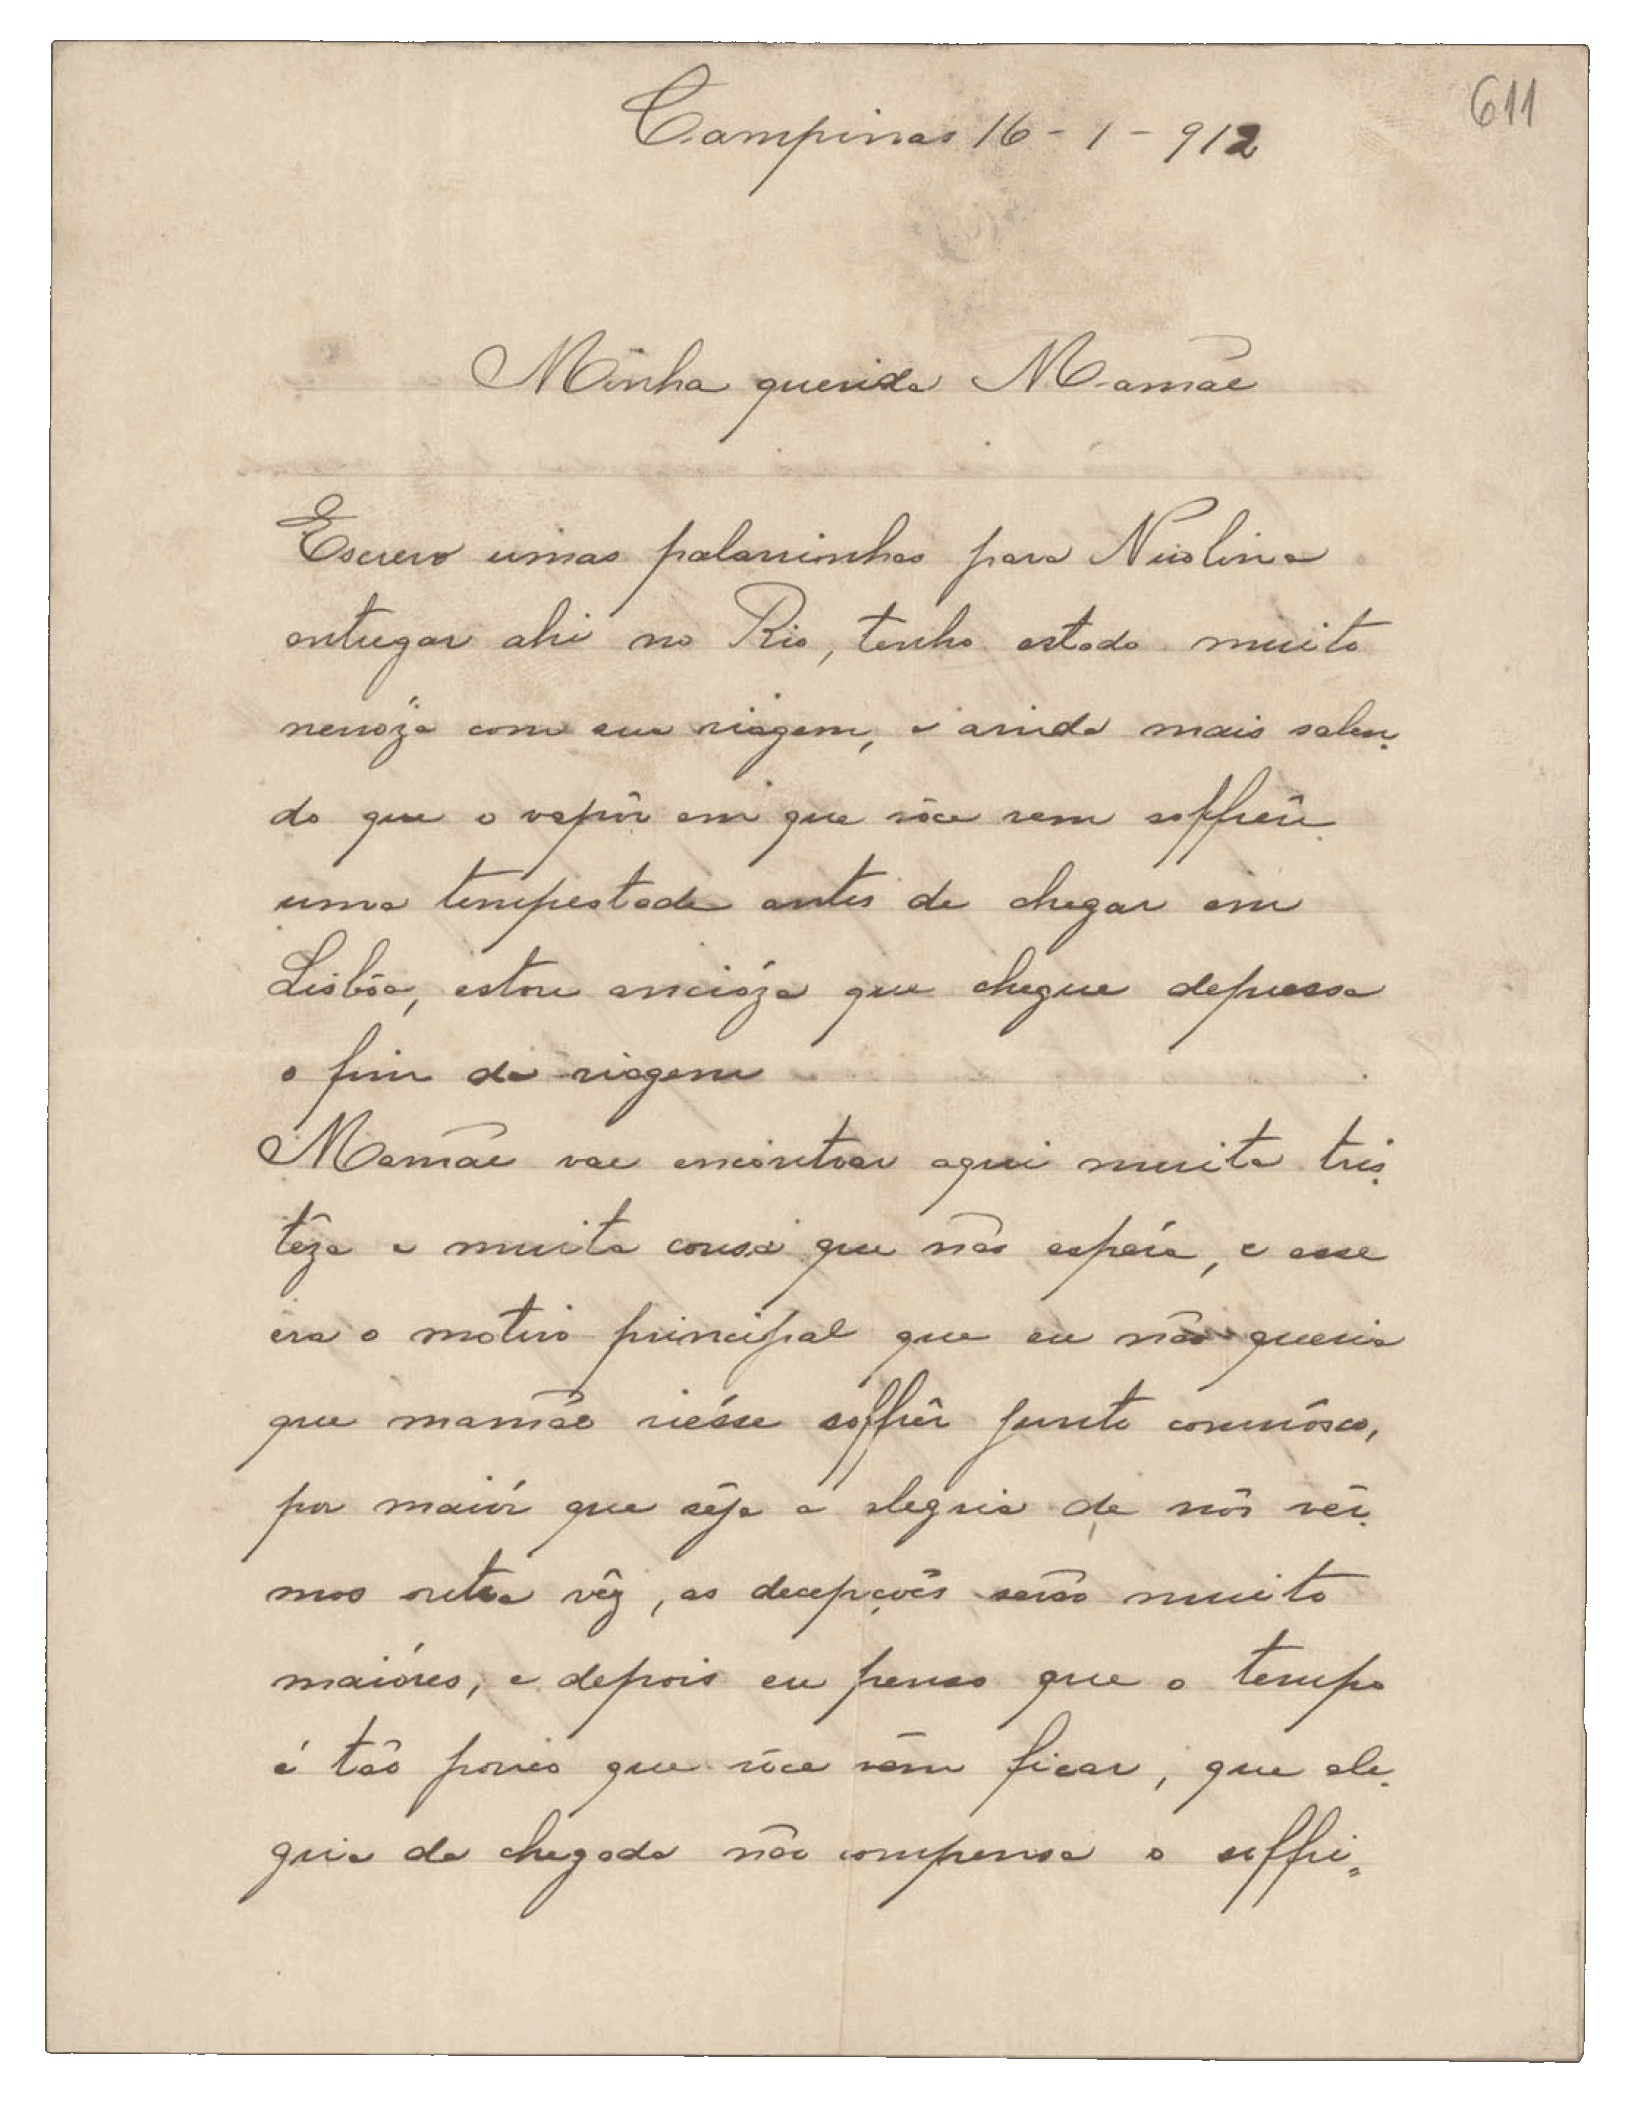 611
Campinas 16 - 1 - 912
Minha querida Mamãe
Escrevo umas palavrinhas para Nicolina
entregar ahi no Rio, tenho estado muito
nervóza com sua viagem, e ainda mais saben-
do que o vapôr em que vôce vem soffrêu
uma tempestade antes de chegar em
Lisbôa, estou ancióza que chegue depressa
o fim da viagem
Mamãe vae encontrar aqui muita tris-
têza e muita cousa que não espéra, e esse
éra o motivo principal que eu não queria
que mamãe viésse soffrêr junto comnôsco,
por maiór que sêja a alegria de nós vêr-
mos outra vêz, as decepções serão muito
maióres, e depois eu penso que o tempo
é tão pouco que vôce vêm ficar, que ale-
gria da chegada não compensa o soffri=